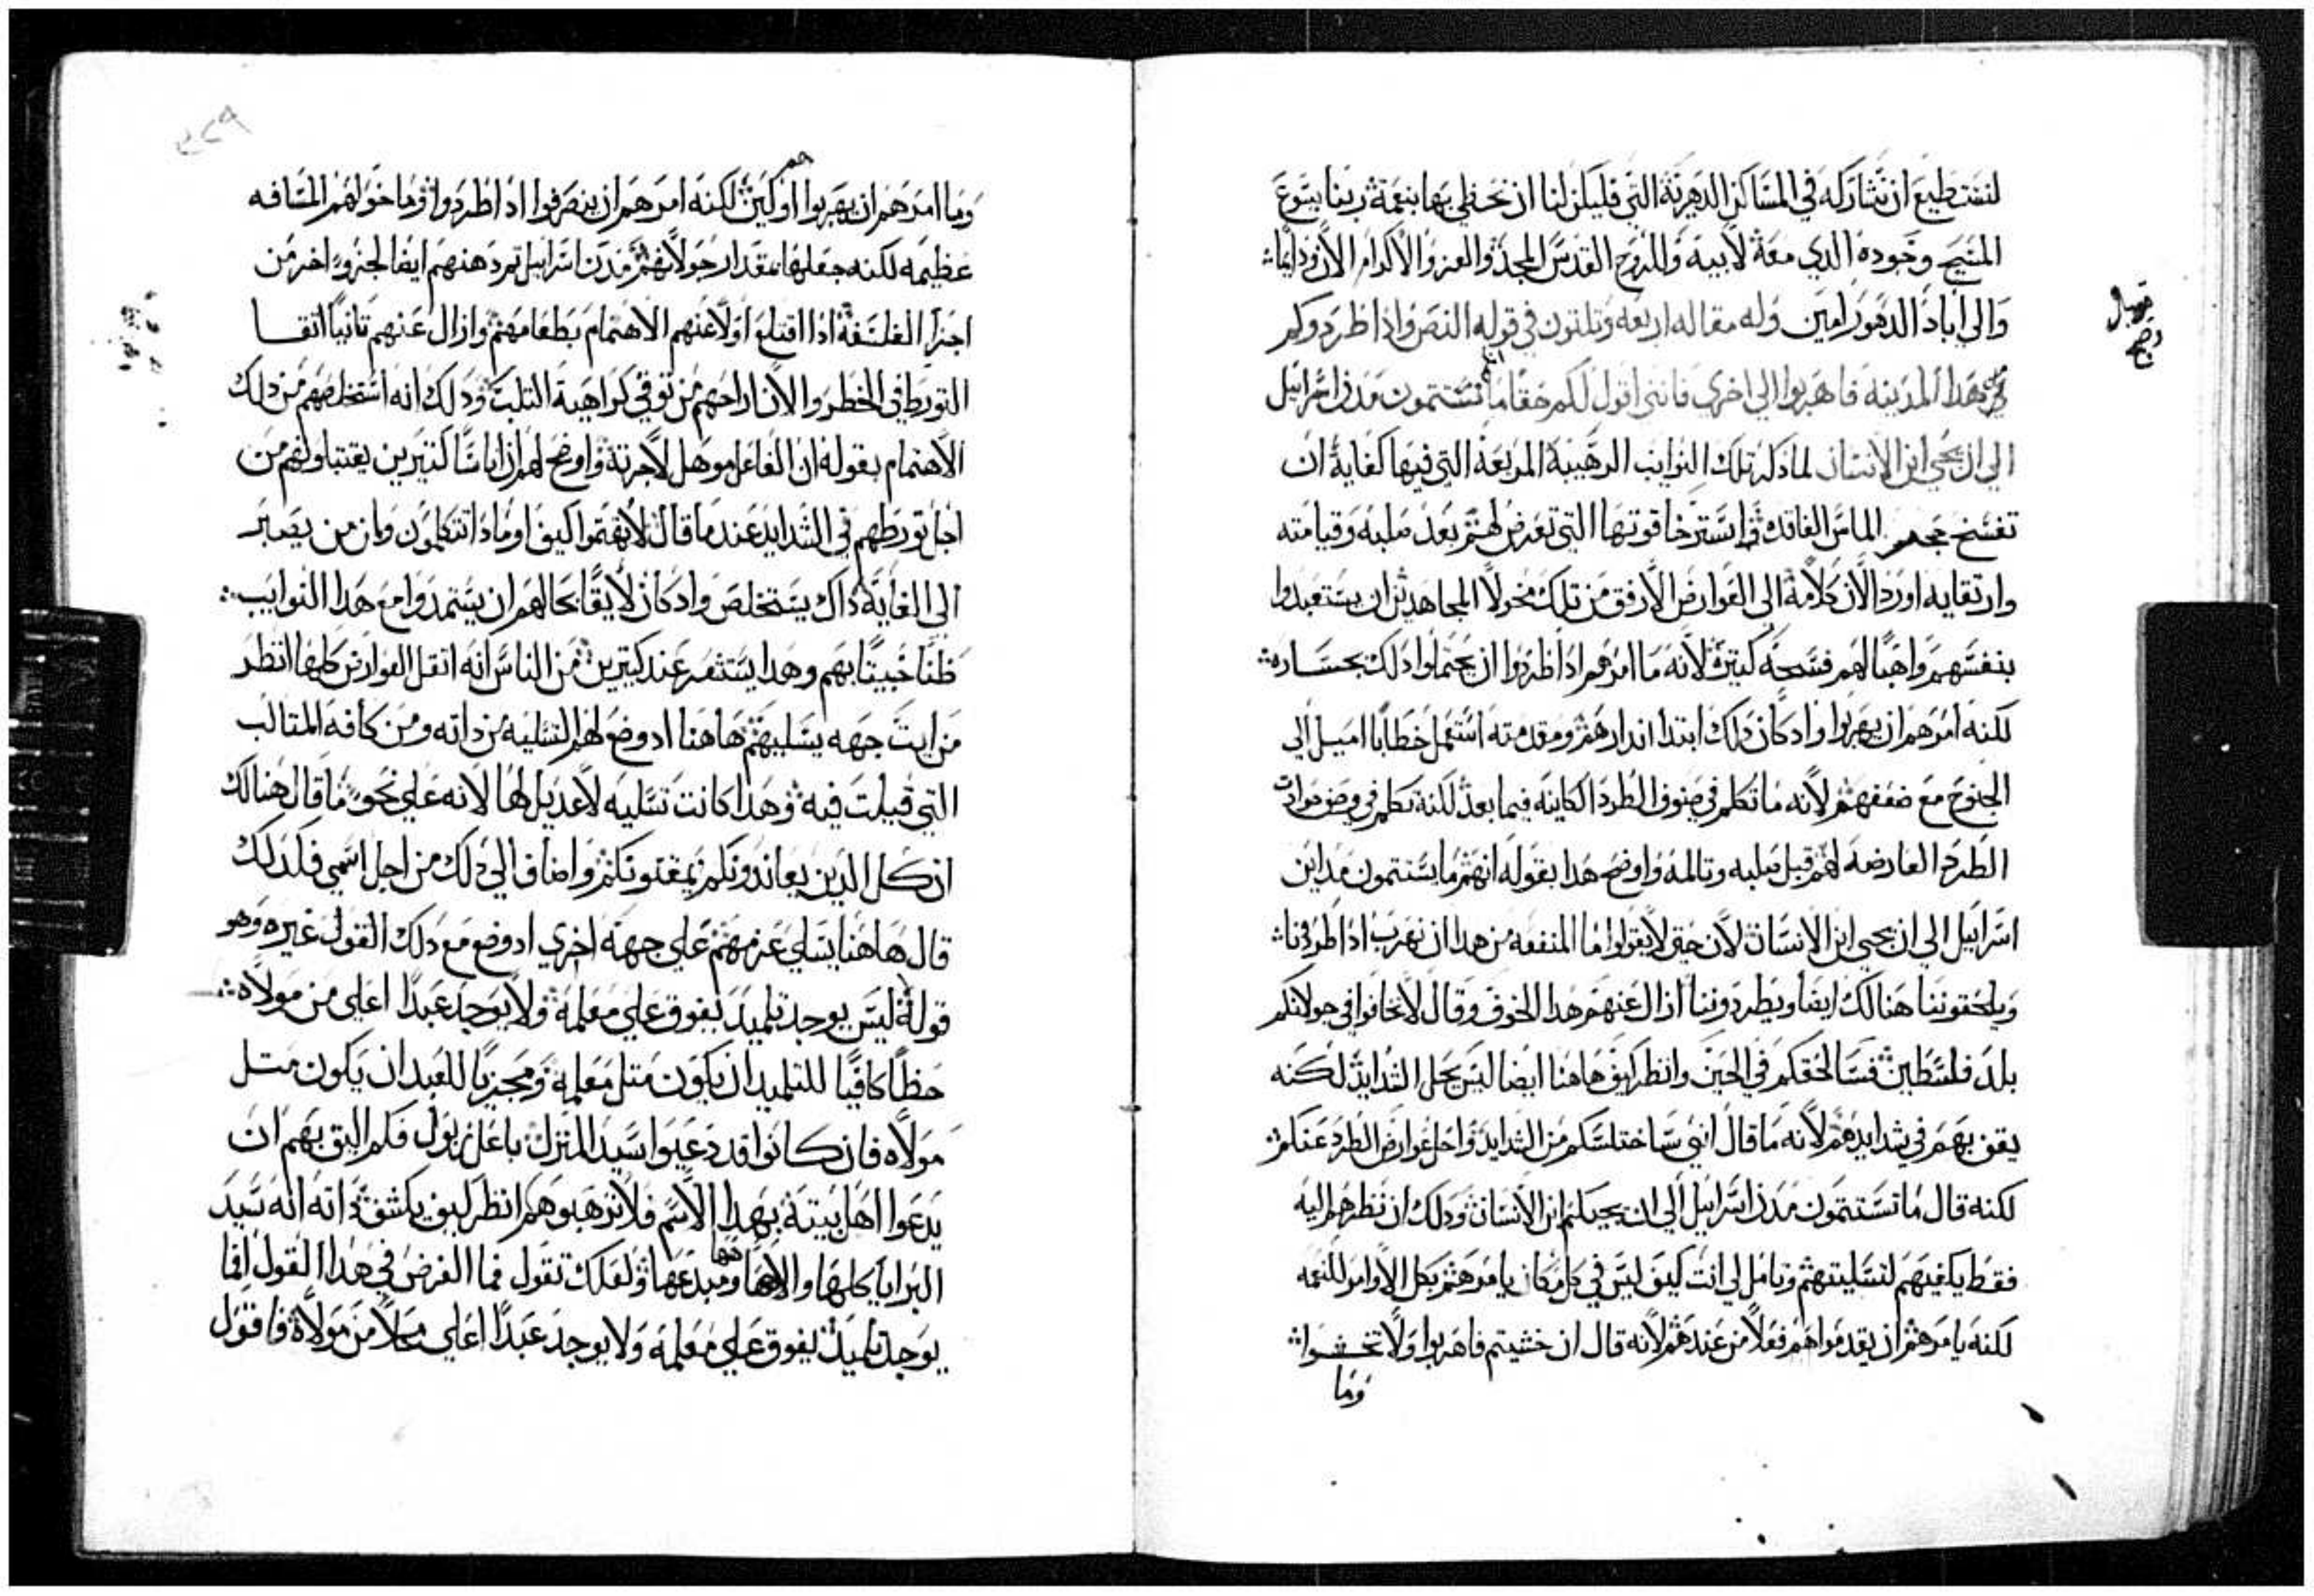 لنستطيع ان نشاركه في المساكن الدهرية التي فليكن لنا ان نحظي بها بنعمة ربنا يسوع
المسيح وجوده الدي معه لابيه والروح القدس المجد والعز والاكرام الان ودايما
والي اباد الدهور امين وله مقاله اربعه وتلتون في قوله النص واذا طردوكم
من هدا المدينه فاهربوا الي اخري فانني اقول لكم حقا ما تستتمون مدن اسراييل
الي ان يجي ابن الانسان لما ذكر تلك النوايب الرهيبة المريعة التي فيها كفاية ان
تفسخ حجر الماس الفاقد استرخا قوتها التي تعرض لهم بعد صلبه وقيامته
وارتقايه اورد الان كلامه الي العوارض الارفق من تلك مخولا المجاهدين ان يستعبدوا
بنفسهم واهبا لهم فسحه كثيرة لانه ما امرهم ادا طردوا ان يحتملوا دلك بجساره
لكنه امرهم ان يهربوا واد كان دلك ابتدا اندارهم ومقدمته استعمل خطابا اميل الي
الجنوح مع ضعفهم لانه ما تكلم في صنوف الطرد الكاينه فيما بعد لكنه تكلم في وصف حوادث
الطرد العارضه لهم قبل صلبه وتالمه واوضح هدا بقوله انهم ما يستتمون مداين
اسراييل الي ان يجي ابن الانسان لان حتي لا يقولوا ما المنفعه من هدا ان نهرب ادا طردنا
ويلحقوننا هنالك ايضا ويطردوننا ازال عنهم هدا الخوف وقال لا تخافوا في جولانكم
بلد فلسطين فسالحقكم في الحين وانظر كيف هاهنا ايضا ليس يحل الشدايد لكنه
يقف بهم في شدايدهم لانه ما قال انني ساختلسكم من الشدايد واحل عوارض الطرد عنكم
لكنه قال ما تستتمون مدن اسراييل الي ان يجيكم ابن الانسان ودلك ان نظرهم اليه
فقط يكفيهم لتسليتهم وتامل لي انت كيف ليس في كل مكان يامرهم بكل الاوامر للنعمه
لكنه يامرهم ان يقدموا هم فعلا من عندهم لانه قال ان خشيتم فاهربوا ولا تخشوا
وما
وما امرهم ان يهربوا هم اولين لكنه امرهم ان ينصرفوا ادا طردوا وما خولهم المسافه
عظيمه لكنه جعلها بمقدار جولانهم مدن اسراييل تم دهنهم ايضا لجزو اخر من
اجزا الفلسفة ادا اقتلع اولا عنهم الاهتمام بطعامهم وازال عنهم تانيا اتقا
التورط في الخطر والان اراحهم من توقي كراهية التلب ودلك انه استخلصهم من دلك
الاهتمام بقوله ان الفاعل موهل لاجرته واوضح لهم ان اناسا كتيرين يقتبلونهم من
اجل تورطهم في الشدايد عند ما قال لا تهتموا كيف او مادا تتكلمون وان من يصبر
الي الغاية داك يستخلص واد كان لايقا بحالهم ان يستمدوا مع هدا النوايب
ظنا خبيتا بهم وهدا يستشعر عند كتيرين من الناس انه اتقل العوارض كلها انظر
من اية جهه يسليهم هاهنا اد وضع لهم التسليه من داته ومن كافه المتالب
التي قيلت فيه وهدا كانت تسليه لا عديل لها لانه علي نحو ما قال هنالك
ان كل الدين يعاندونكم يمقتونكم واضاف الي دلك من اجل اسمي فكدلك
قال هاهنا يسلي عزمهم علي جهه اخري اد وضع مع دلك القول غيره وهو
قوله ليس يوجد تلميد يفوق علي معلمه ولا يوجد عبدا اعلي من مولاه
حظا كافيا للتلميد ان يكون متل معلمه ومجزيا للعبد ان يكون متل
مولاه فان كانوا قد دعيوا سيد المنزل باعل زبول فكم اليق بهم ان
يدعوا اهل بيته بهدا الاسم فلا ترهبوهم انظر كيف يكشف داته انه سيد
البرايا كلها والاهها ومبدعها ولعلك تقول فما الغرض في هدا القول افما
يوجد تلميد يفوق علي معلمه ولا يوجد عبدا اعلي محلا من مولاه فاقول